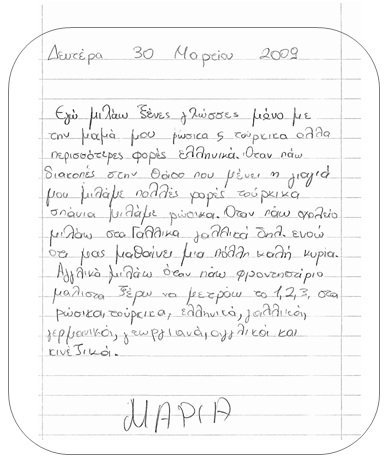 Δευτέρα 30 Μαρτίου 2009
Εγώ μιλάω ξένες γλώσσες μόνο με
την μαμά μου ρώσικα ς τούρκικα αλλα
περισσότερες φορές ελληνικά. Όταν πάω
διακοπές στην Θάσο που μένει η γιαγιά
μου μιλάμε πολλές φορές τούρκικα
σπάνια μιλάμε ρώσικα. Όταν πάω σχολείο
μιλάω στα Γαλλικά γαλλικά δηλ. ενοώ
οτι μας μαθαίνει μια πόλλη καλή κυρία.
Αγγλικά μιλάω όταν πάω φροντηστήριο
μάλιστα ξέρω να μετράω το 1,2,3, στα
ρώσικα, τούρκικα, ελληνικά, γαλλικά,
γερμανικά, γεωργιανά, αγγλικά και
κινέζικα.
ΜΑΡΙΑ